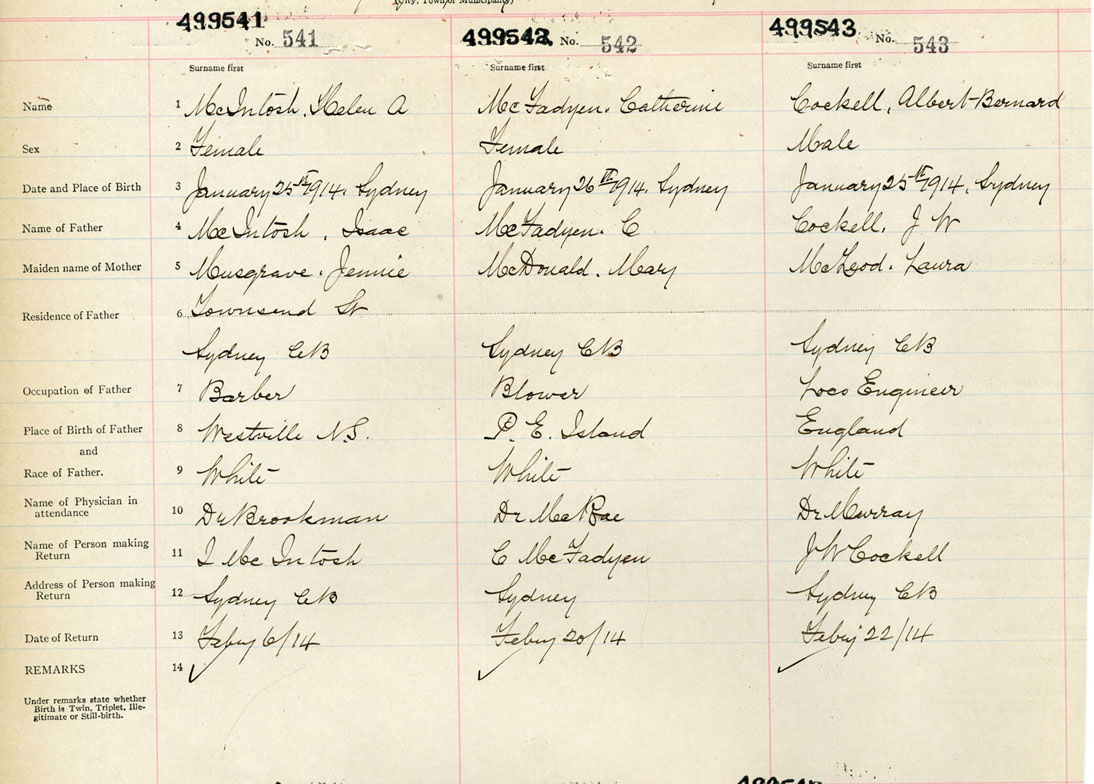 (City, Town or Municipality)
499541 No. 541 499542 No. 542 499543 No. 543
Surname first Surname first Surname first
Name 1 McIntosh, Helen A McFadyen. Catherine Cockell, Albert Bernard
Sex 2 Female Female Male
Date and Place of Birth 3 January 25th 1914. Sydney January 26th 1914. Sydney January 25th 1914. Sydney
Name of Father 4 McIntosh, Isaac McFadyen. C Cockell. J W
Maiden name of Mother 5 Musgrave. Jennie McDonald. Mary McLeod. Laura
Residence of Father 6 Townsend St
Sydney CB Sydney CB Sydney CB
Occupation of Father 7 Barber Blower Loco Engineer
Place of Birth of Father 8 Westville N.S. P. E. Island England
and
Race of Father. 9 White White White
Name of Physician in attendance 10 Dr Brookman Dr McRae Dr Murray
Name of Person making Return 11 I McIntosh C McFadyen J W Cockell
Address of Person making Return 12 Sydney CB Sydney Sydney CB
Date of Return 13 Feby 6/14 Feby 20/14 Feby 22/14
REMARKS 14
Under remarks state whether
Birth is Twin, Triplet, Ille-
gitimate or Still-birth.